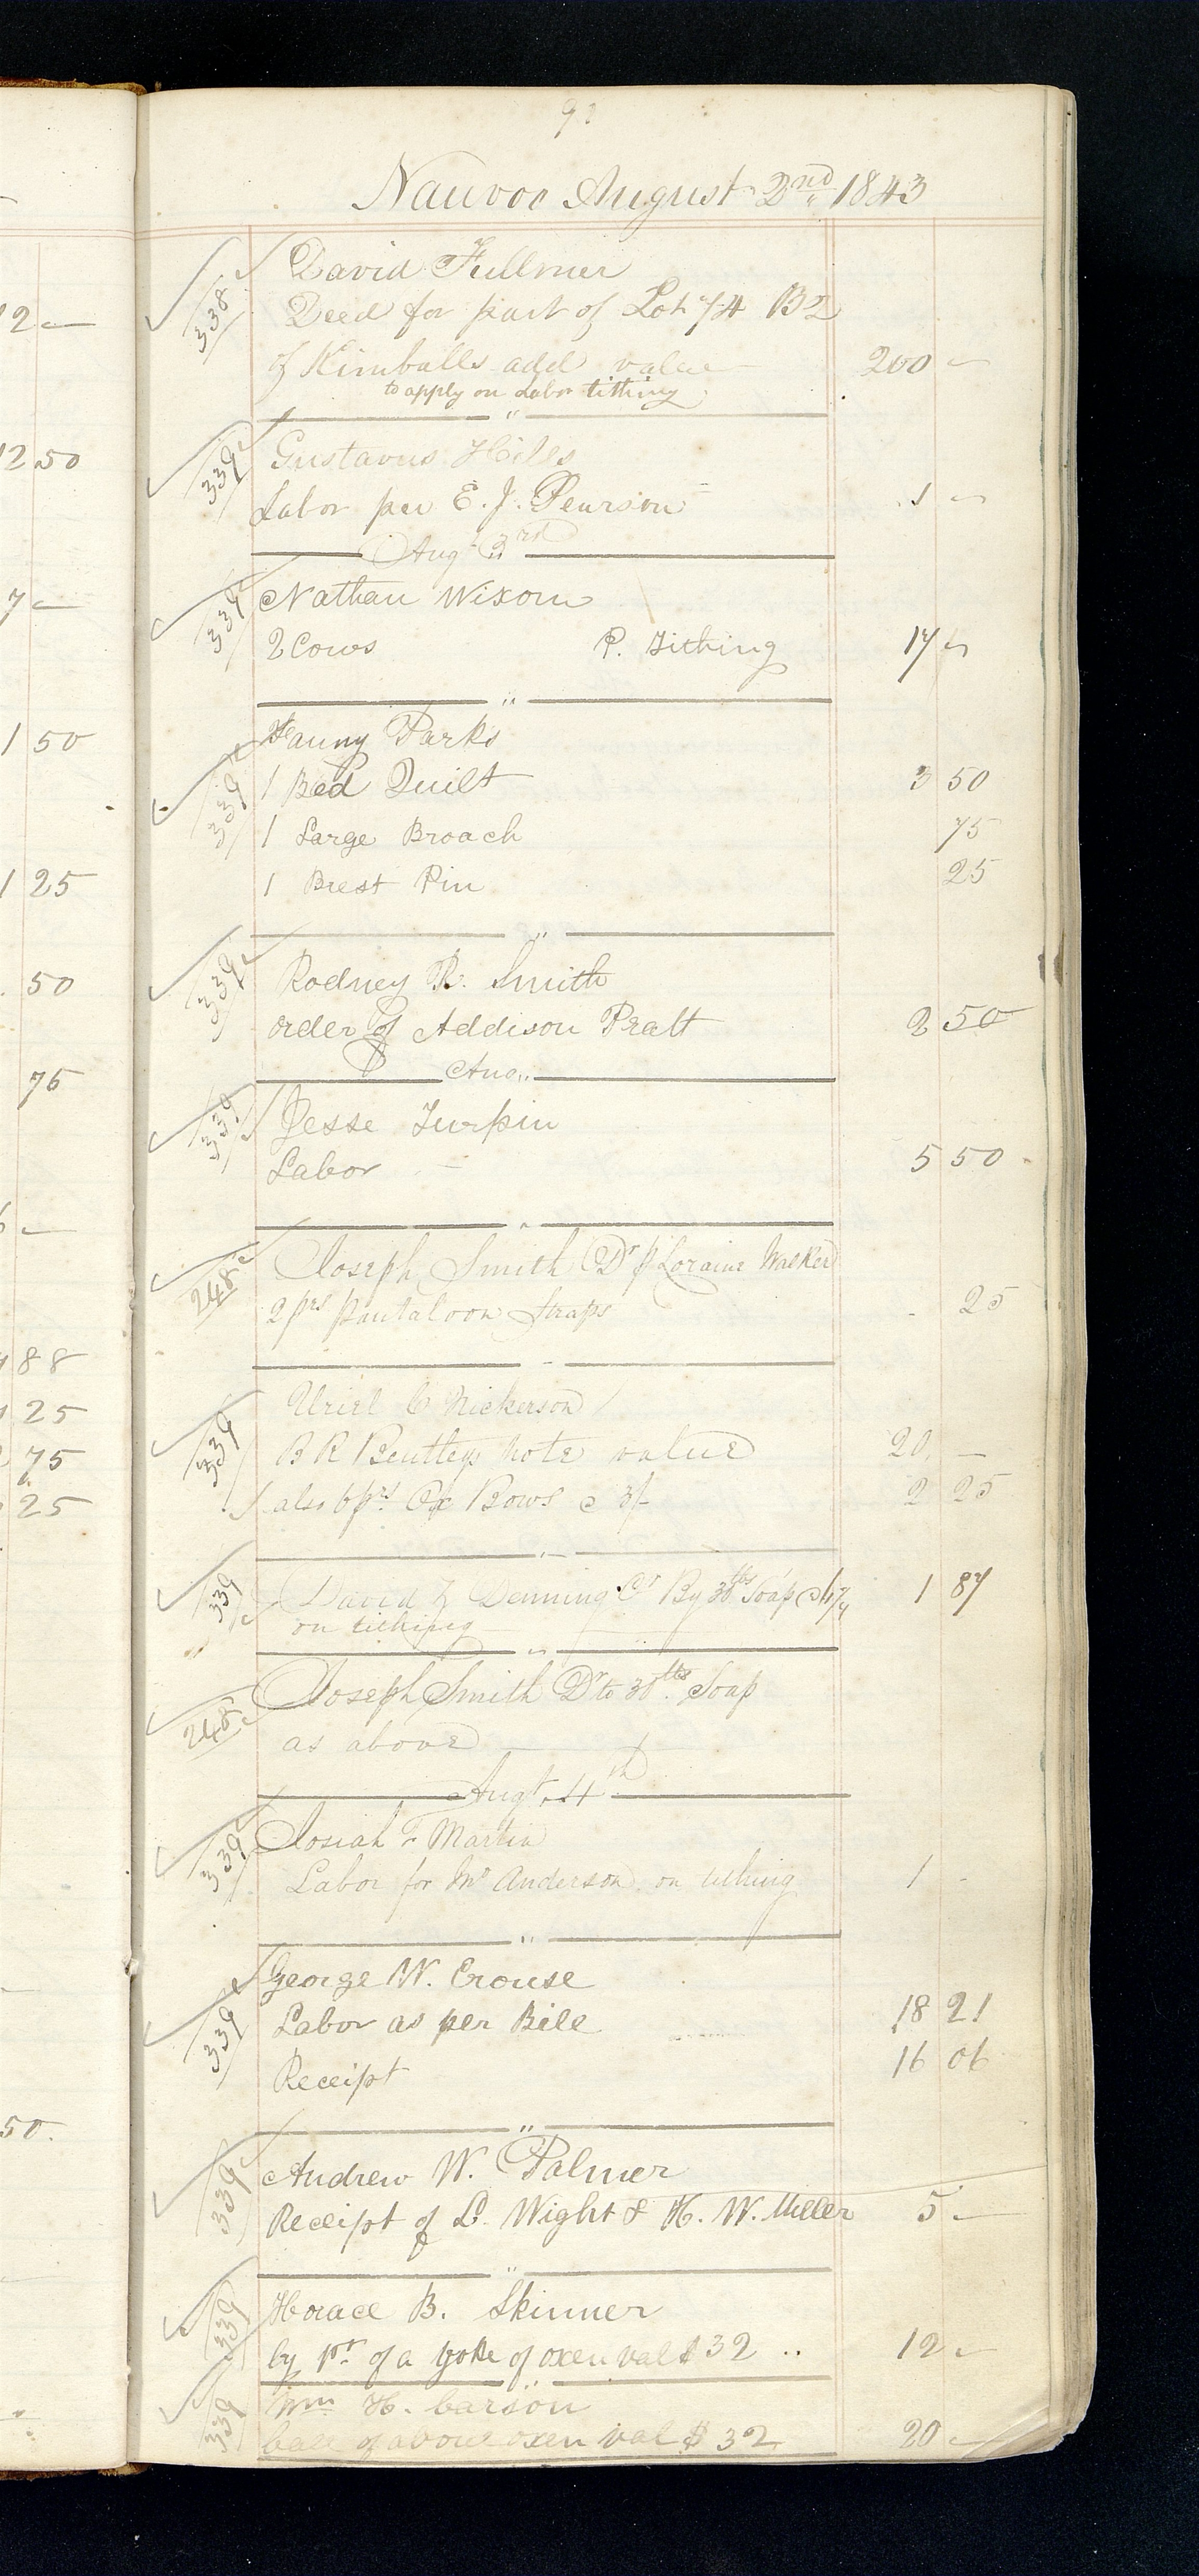 2 —
12 50
7 —
1 50
1 25
50
75
—
88
25
75
25
50.
Nauvoo August 2nd 1843
338 David Fullmer
Deed for part of Lot 74 B 2
of Kimballs add value 200 —
to apply on Labor tithing
"
339 Gustavus Hills
Labor per E. J. Pearson 1 —
Aug 3rd
339 Nathan Wixom
2 Cows P. Tithing 17 —
"
339 Fanny Parks
1 Bed Quilt 3 50
1 Large Broach 75
1 Brest Pin 25
"
339 Rodney R. Smith
order of Addison Pratt 2 50
Aug "
339 Jesse Turpin
Labor 5 50
"
248 Joseph Smith Dr p Loraine Walker
2 prs Pantaloon Straps 25
"
339 Uriel C Nickerson
B R Bentleys note value 20 —
also 6 prs Ox Bows @ 3/- 2 25
"
339 David Denning Cr By 30 lbs Soap @ 1 87
on tithing
"
248 Joseph Smith Dr to 30 lbs Soap
as above
Augt. 4th
339 Josiah Martin
Labor for Mr Anderson on tithing 1 -
"
339 George W. Crouse
Labor as per Bill 18 21
Receipt 16 06
"
339 Andrew W. Palmer
Receipt of L. Wight & H. W. Miller 5 —
"
339 Horace B. Skinner
by pr. of a yoke of oxen val $32 .. 12 —
"
339 Wm H. Carson
bale of above oxen val $32 20 —